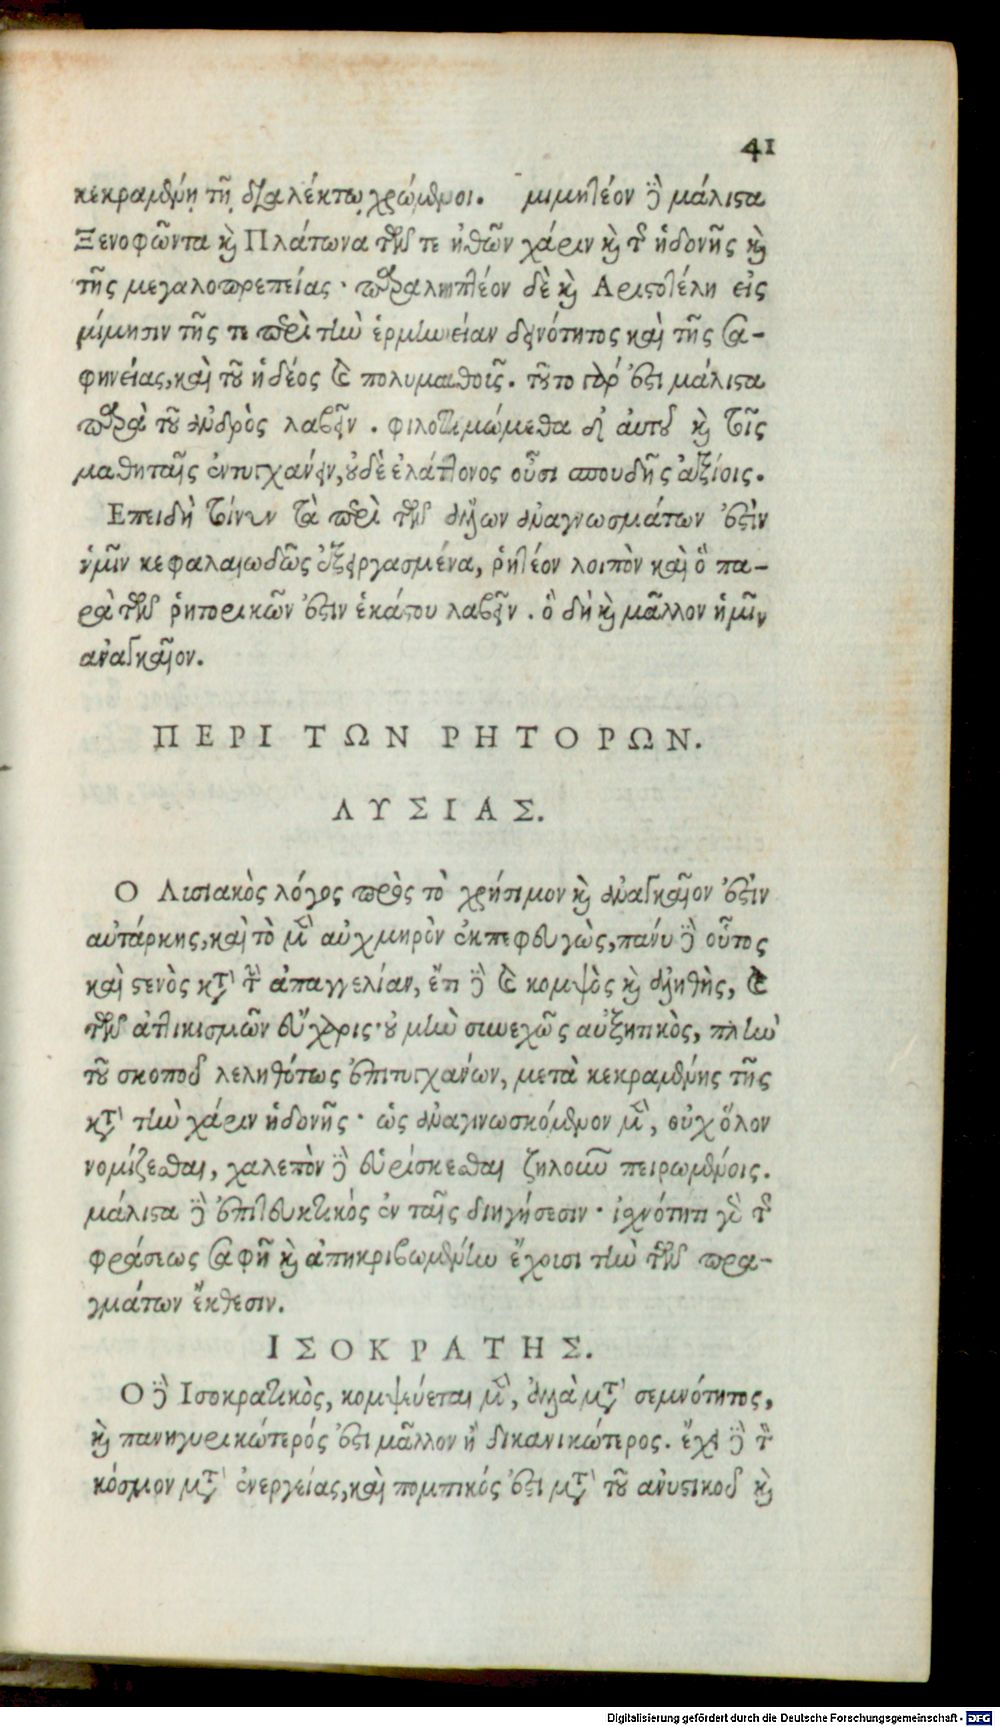 41
κεκραμένῃ τῇ διαλέκτῳ χρώμενοι. μιμητέον δὲ μάλιστα
Ξενοφῶντα καὶ Πλάτωνα τῶν τε ἠθῶν χάριν καὶ τῆς ἡδονῆς καὶ
τῆς μεγαλοπρεπείας· παραληπτέον δὲ καὶ Αριστοτέλη εἰς
μίμησιν τῆς τε περὶ τὴν ἑρμηνείαν δεινότητος καὶ τῆς σα-
φηνείας, καὶ τοῦ ἡδέος καὶ πολυμαθοῦς. τοῦτο γάρ ἐστι μάλιστα
παρὰ τοῦ ἀνδρὸς λαβεῖν. φιλοτιμώμεθα δ' αὐτοῦ καὶ τοῖς
μαθηταῖς ἐντυγχάνειν, οὐδὲ ἐλάττονος οὖσι σπουδῆς ἀξίοις.
Επειδὴ τοίνυν τὰ περὶ τῶν ἄλλων ἀναγνωσμάτων ἐστὶν
ἡμῖν κεφαλαιωδῶς ἐξειργασμένα, ῥητέον λοιπὸν καὶ ὃ πα-
ρὰ τῶν ῥητορικῶν ἔστιν ἑκάστου λαβεῖν. ὃ δὴ καὶ μᾶλλον ἡμῖν
ἀναγκαῖον.
ΠΕΡΙ ΤΩΝ ΡΗΤΟΡΩΝ.
ΛΥΣΙΑΣ.
Ο Λισιακὸς λόγος πρὸς τὸ χρήσιμον καὶ ἀναγκαῖον ἐστὶν
αὐτάρκης, καὶ τὸ μὲν αὐχμηρὸν ἐκπεφευγὼς, πάνυ δὲ οὗτος
καὶ στενὸς κατὰ τὴν ἀπαγγελίαν, ἔτι δὲ καὶ κομψὸς καὶ ἀληθὴς, καὶ
τῶν ἀττικισμῶν εὔχαρις· οὐ μὴν συνεχῶς αὐξητικὸς, πλὴν
τοῦ σκοποῦ λεληθότως ἐπιτυγχάνων, μετὰ κεκραμένης τῆς
κατὰ τὴν χάριν ἡδονῆς· ὡς ἀναγινωσκόμενον μὲν, εὐχόλον
νομίζεσθαι, χαλεπὸν δὲ εὑρίσκεσθαι ζηλοῦν πειρωμένοις.
μάλιστα δὲ ἐπιτευκτικὸς ἐν ταῖς διηγήσεσιν· ἰσχνότητι γὰρ τῆς
φράσεως σαφῆ καὶ ἀπηκριβωμένην ἔχουσι τὴν τῶν πρα-
γμάτων ἔκθεσιν.
ΙΣΟΚΡΑΤΗΣ.
Ο δὲ Ισοκρατικὸς, κομψεύεται μὲν, ἀλλὰ μετὰ σεμνότητος,
καὶ πανηγυρικώτερός ἐστι μᾶλλον ἢ δικανικώτερος. ἔχει δὲ τὸν
κόσμον μετὰ ἐνεργείας, καὶ πομπικός ἐστι μετὰ τοῦ ἀνυστικοῦ καὶ